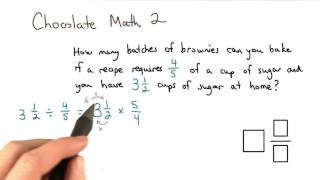 Chocolate Math 2
How many batches of brownies can you bake
if a recipe requires 4/5 of a cup of sugar and
you have 3 1/2 cups of sugar at home?
3 1/2 ÷ 4/5 = 3 1/2 × 5/4